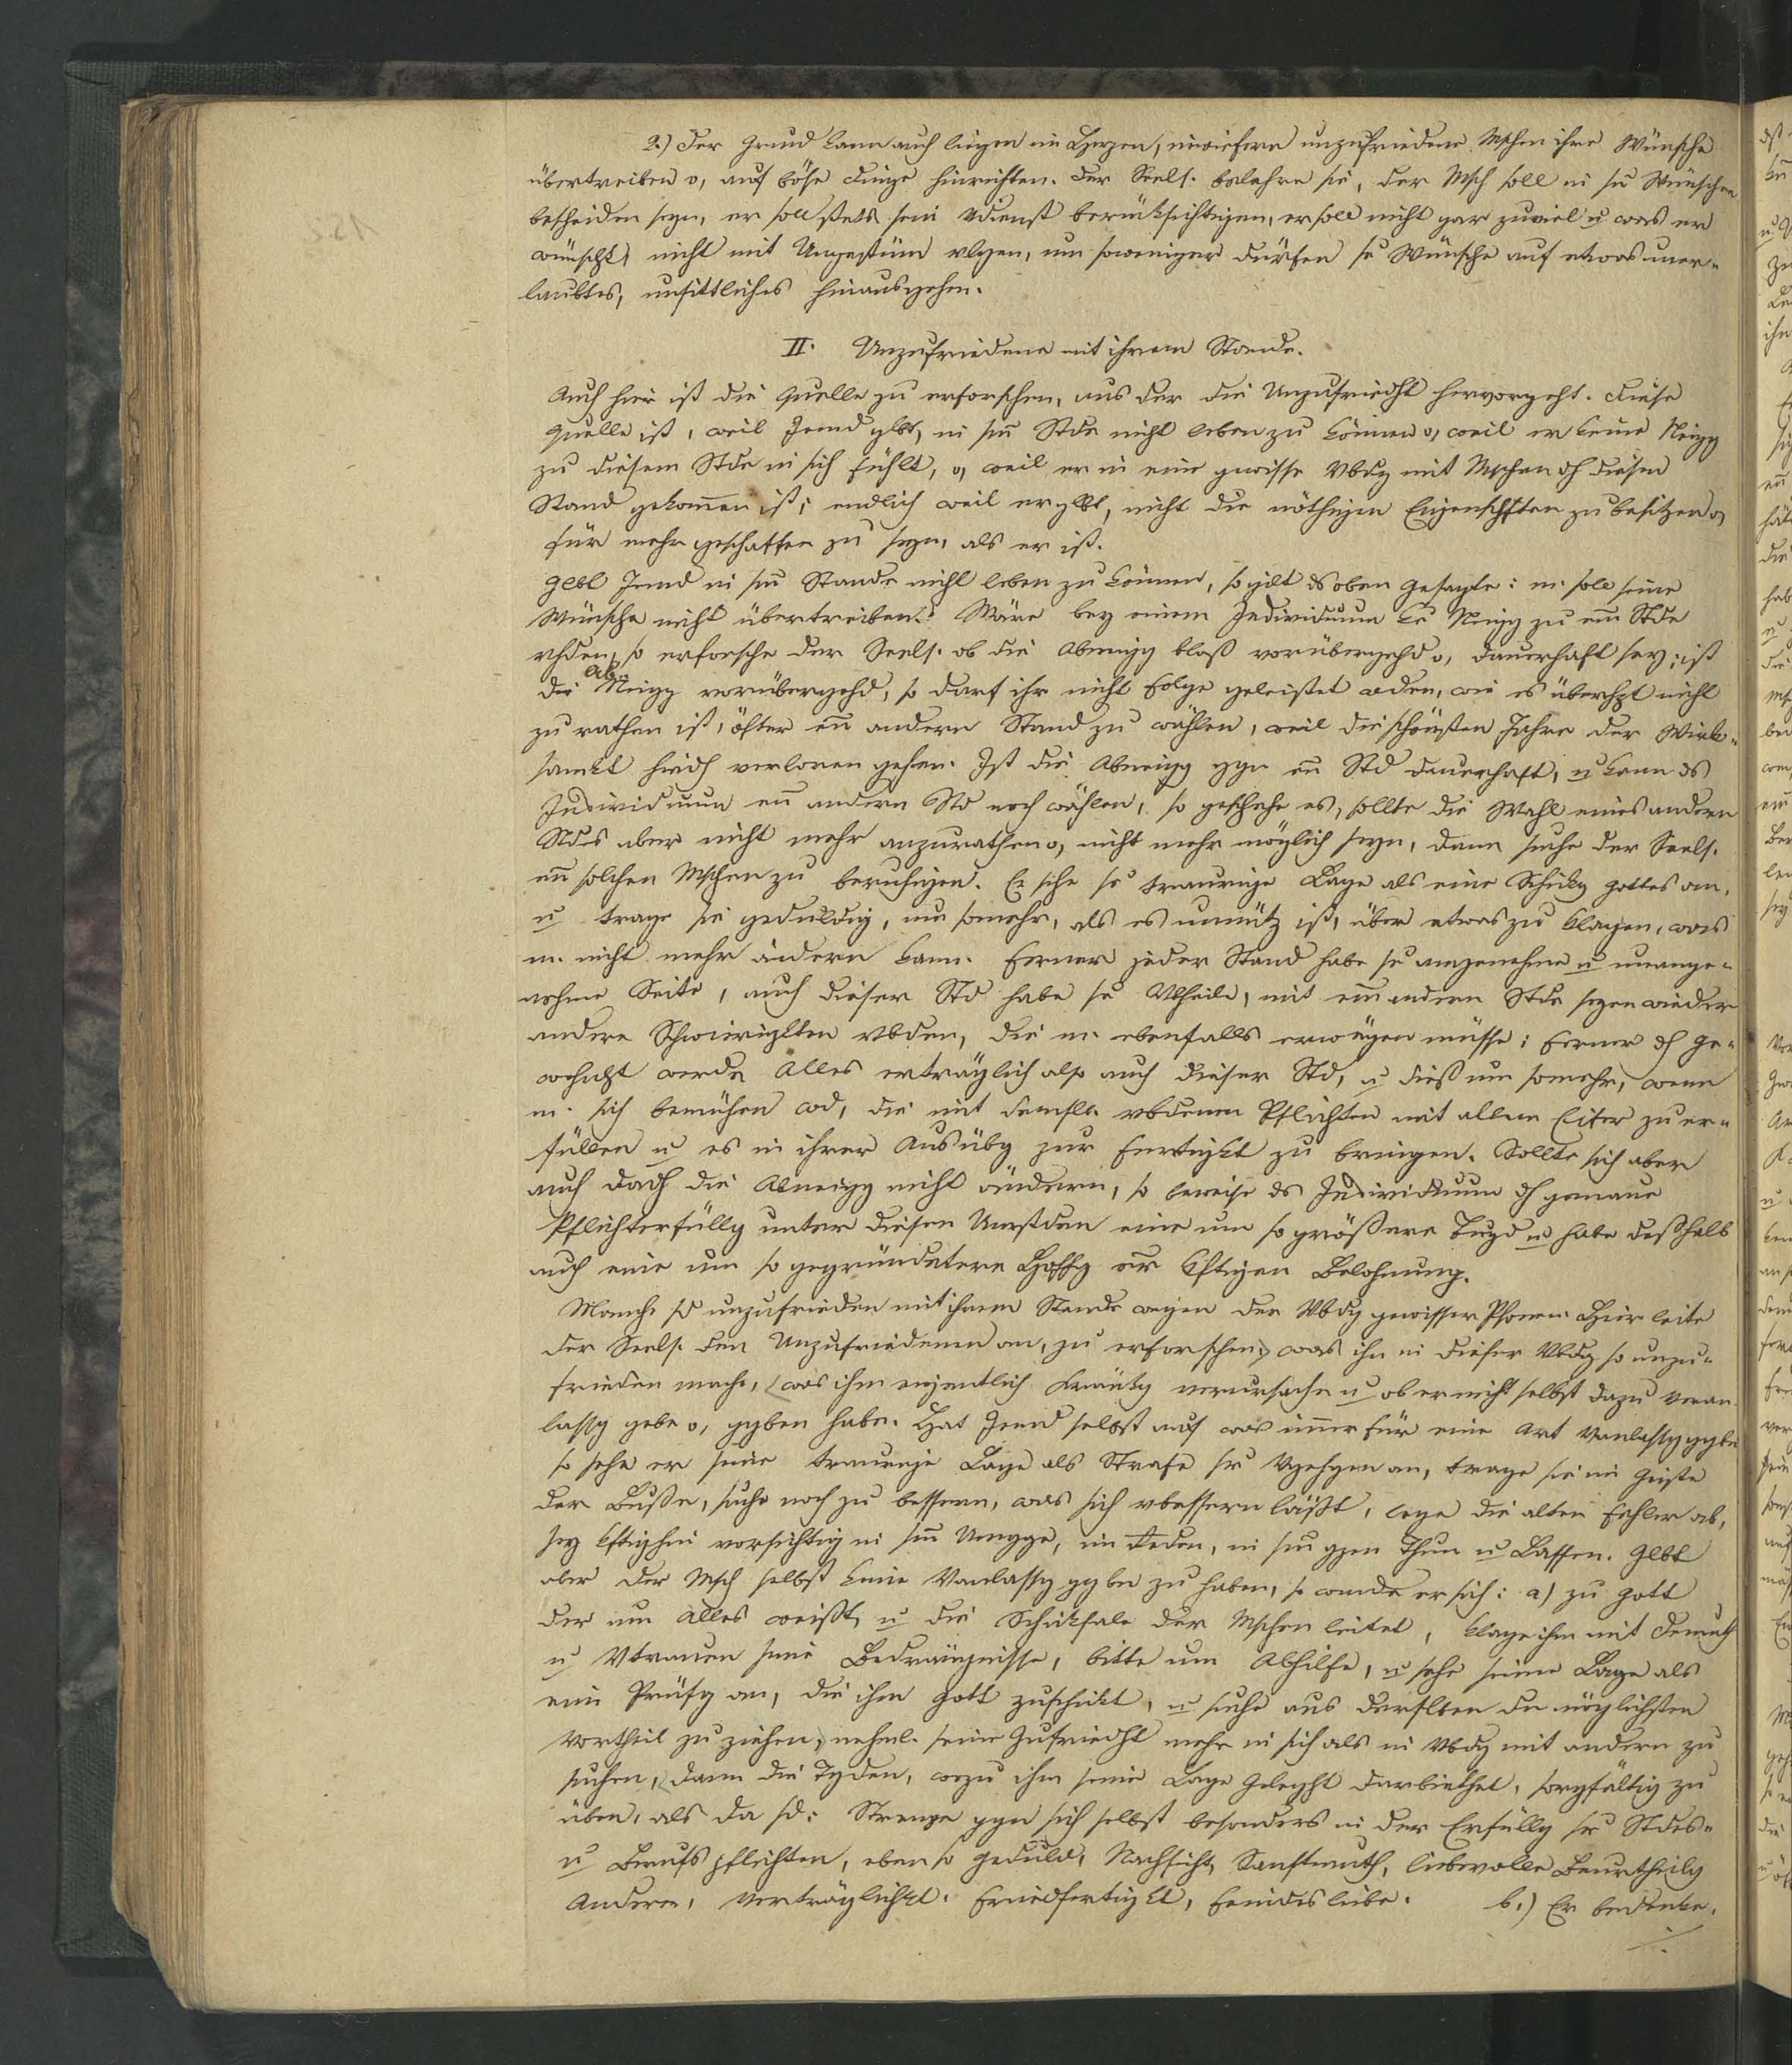 2.) Der Grund kann auch liegen im Herzen, inwiefern unzufriedene Mschen ihre Wünsche
übertreiben o, auf böse Dinge hinrichten. Der Seels. belehre sie, der Msch soll in sn Wünschen
bescheiden seyn, er soll stets sein Vdienst berücksichtigen, er soll nicht gar zuviel u was er
wünscht, nicht mit Ungestüm vlgen, um soweniger dürfen se Wünsche auf etwas uner-
laubtes, unsittliches hinausgehen.
II. Unzufriedene mit ihrem Stande.
Auch hier ist die Quelle zu erforschen, aus der die Unzufriedht hervorgeht. Diese
Quelle ist, weil Jemd glbt, in sm Stde nicht leben zu können o, weil er keine Neigg
zu diesem Stde in sich fühlt, o, weil er in eine gewisse Vbdg mit Mschen dh diesen
Stand gekommen ist; endlich weil er glbt, nicht die nöthigen Eigenschften zu besitzen o,
für mehr geschaffen zu seyn, als er ist.
Glbt Jemd in sm Stande nicht leben zu können, so gilt ds oben Gesagte: m. soll seine
Wünsche nicht übertreiben. Wäre bey einem Individuum ke Neigg zu em Stde
vhden, so erforsche der Seels. ob die Abneigg bloß vorübergehd o, dauerhaft sey; ist
die Ab-Neigg vorübergehd, so darf ihr nicht Folge geleistet wden, wie es überhpt nicht
zu rathen ist, öfter en andern Stand zu wählen, weil die schönsten Jahre der Wirk-
samkt hiedh verloren gehen. Ist die Abneigg ggn en Std dauerhaft, u kann ds
Individuum en andern Std noch wählen, so geschehe es, sollte die Wahl eines andern
Stdes aber nicht mehr anzurathen o, nicht mehr möglich seyn, dann suche der Seels.
en solchen Mschen zu beruhigen. Er sehe se traurige Lage als eine Schickg Gottes an,
u trage sie geduldig, um somehr, als es unnütz ist, über etwas zu klagen, was
m. nicht mehr ändern kann. Ferner jeder Stand habe se angenehme u unange-
nehme Seite, auch dieser Std habe se Vtheile, mit em andern Stde seyen wieder
andere Schwierigktten vbden, die m. ebenfalls erwägen müsse; Ferner dh Ge-
wohnht werde Alles erträglich also auch dieser Std, u dieß um somehr, wenn
m. sich bemühen wd, die mit demslb. vbdenen Pflichten mit allem Eifer zu er-
füllen u es in ihrer Ausübg zur Fertigkt zu bringen. Sollte sich aber
auch dadh die Abneigg nicht ändern, so beweise ds Individuum dh genaue
Pflichterfüllg unter diesen Umstden eine um so größere Tugd u habe deßhalb
auch eine um so gegründetere Hoffg er kftigen Belohnung.
Manche sd unzufrieden mit ihrem Stande wegen der Vbdg gewisser Psonen. Hier leite
der Seels. den Unzufriedenen an, zu erforschen, was ihn in dieser Vbdg so unzu-
frieden mache, was ihm eigentlich Kränkg verursache u ob er nicht selbst dazu Veran
lassg gebe o, ggben habe. Hat Jemd selbst auf was immer für eine Art Vanlassg ggbn
so sehe er seine traurige Lage als Strafe sr Vgehgen an, trage sie im Geiste
der Buße, suche noch zu bessern, was sich vbessern läßt, lege die alten Fehler ab,
sey kftighin vorsichtig in sm Umgge, im Reden, in sm gzen Thun u Lassen. Glbt
aber der Msch selbst keine Vanlassg ggben zu haben, so wende er sich: a) zu Gott
der um Alles weißt, u die Schicksale der Mschen leitet, klage ihm mit Demuth
u Vtrauen seine Bedrängnisse, bitte um Abhilfe, u sehe seine Lage als
eine Prüfg an, die ihm Gott zuschickt, u suche aus derslben den möglichsten
Vortheil zu ziehen, nehml. seine Zufriedht mehr in sich als in Vbdg mit andern zu
suchen, dann die Tgden, wozu ihm seine Lage Geleght darbiethet, sorgfältig zu
üben, als da sd: Strenge ggn sich selbst besonders in der Erfüllg sr Stdes-
u Berufspflichten, ebenso Geduld, Nachsicht, Sanftmuth, liebevolle Beurtheilg
Anderer, Verträglichkt. Friedfertigkt, Feindesliebe. b.) Er bedenke,